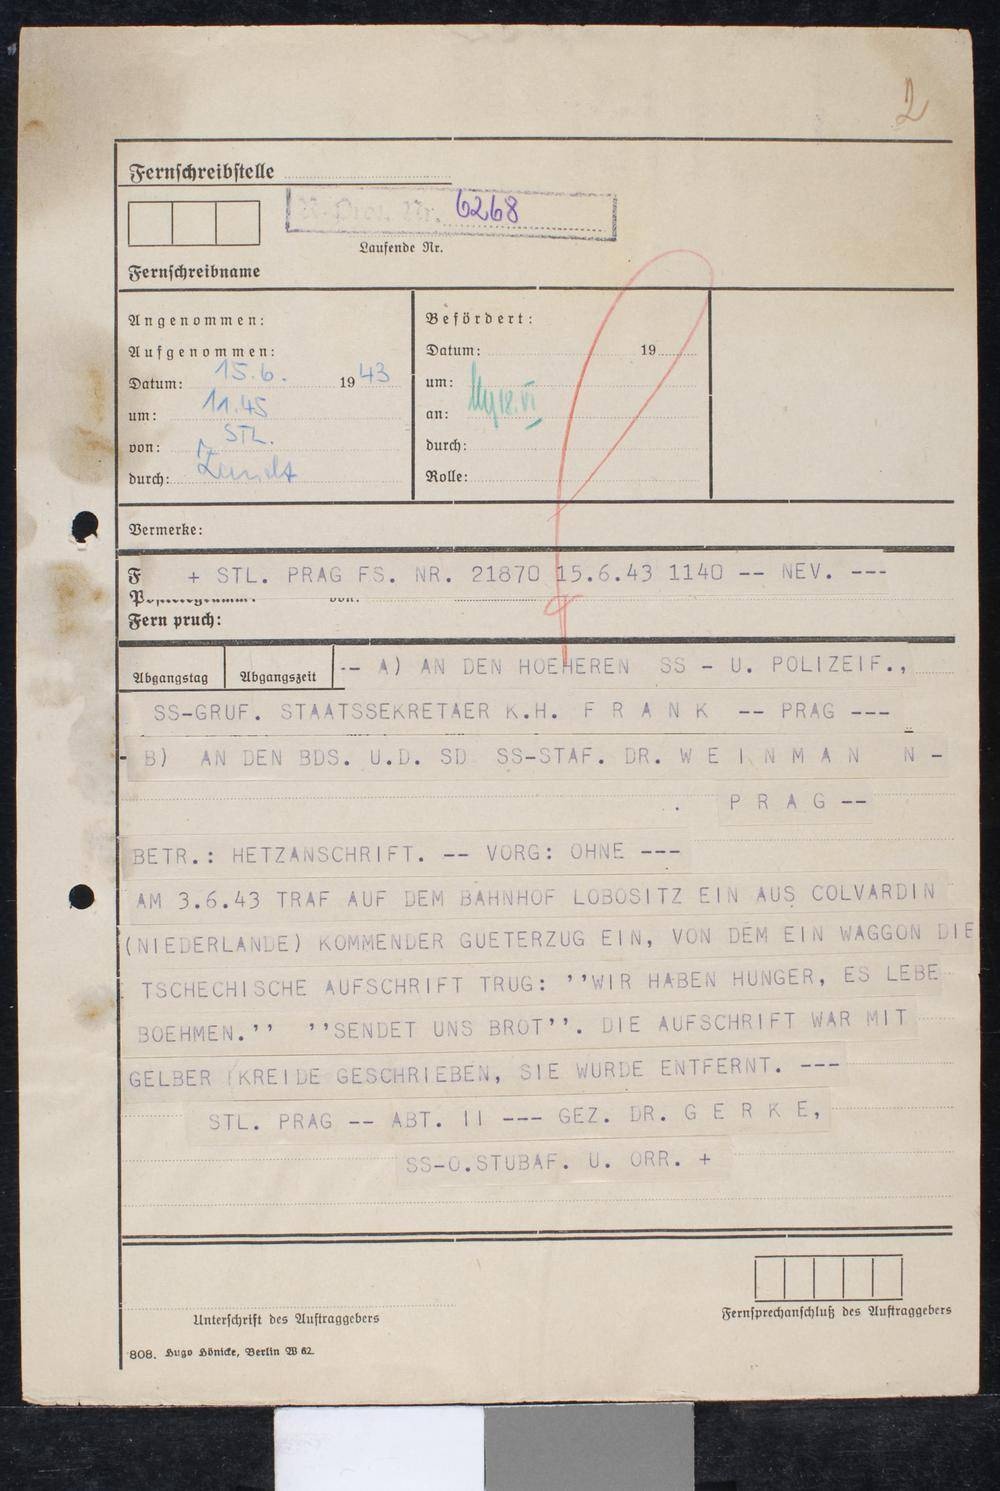 2
Fernschreibstelle
R. Prot. Nr. 6268
Laufende Nr.
Fernschreibname
Angenommen:
Aufgenommen:
Datum: 15.6. 1943
um: 11.45
von: STL.
durch:
Befördert:
Datum: 19
um:
an: 18.VI
durch:
Rolle:
Vermerke:
F + STL. PRAG FS. NR. 21870 15.6.43 1140 -- NEV. ---
von:
Fern pruch:
Abgangstag Abgangszeit -- A) AN DEN HOEHEREN SS - U. POLIZEIF.,
SS-GRUF. STAATSSEKRETAER K.H. F R A N K -- PRAG ---
- B) AN DEN BDS. U.D. SD SS-STAF. DR. W E I N M A N N -
. P R A G --
BETR.: HETZANSCHRIFT. -- VORG: OHNE ---
AM 3.6.43 TRAF AUF DEM BAHNHOF LOBOSITZ EIN AUS COLVARDIN
(NIEDERLANDE) KOMMENDER GUETERZUG EIN, VON DEM EIN WAGGON DIE
TSCHECHISCHE AUFSCHRIFT TRUG: ’’WIR HABEN HUNGER, ES LEBE
BOEHMEN.’’ ’’SENDET UNS BROT’’. DIE AUFSCHRIFT WAR MIT
GELBER KREIDE GESCHRIEBEN, SIE WURDE ENTFERNT. ---
STL. PRAG -- ABT. II --- GEZ. DR. G E R K E,
SS-O.STUBAF. U. ORR. +
Unterschrift des Auftraggebers
Fernsprechanschluß des Auftraggebers
808. Hugo Hönicke, Berlin W 62.